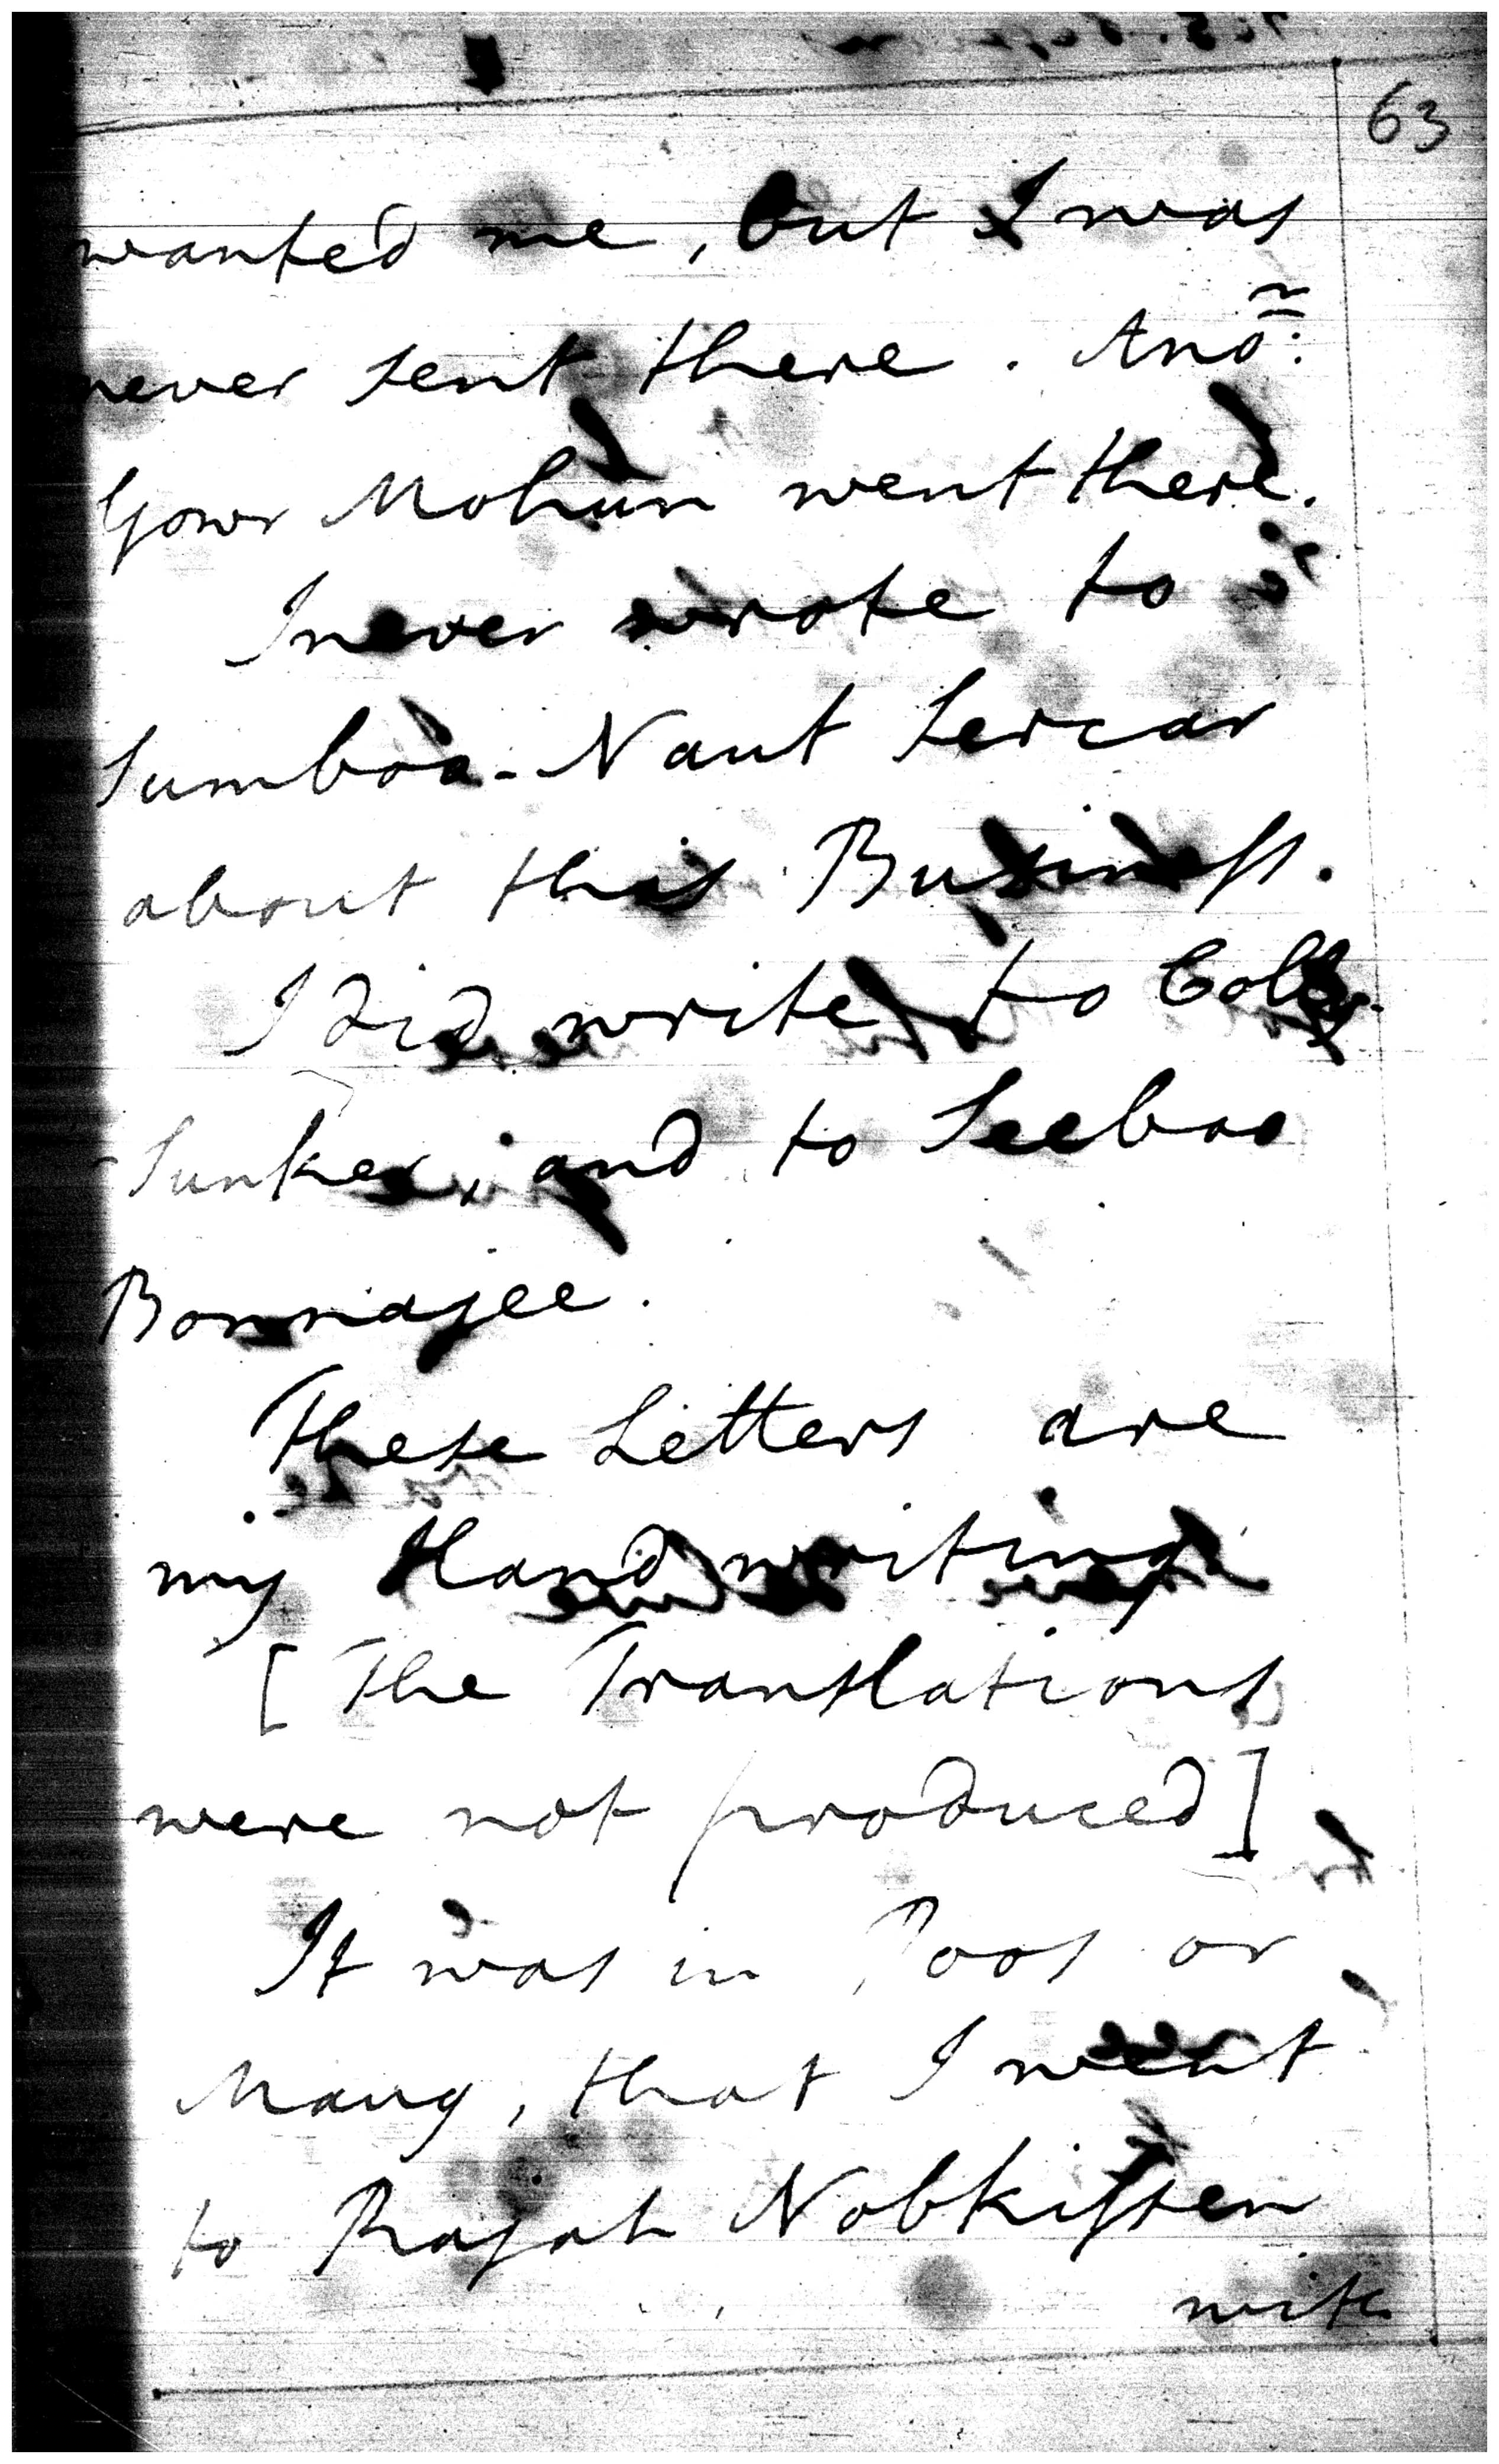 63
wanted me, but I was
never sent there. Ano:
Gowr Mohun went there.
I never wrote to
Sumboo-Naut Sercar
about this Business.
I did write to Colly-
Sunker, and to Seeboo
Bonnajee.
These Letters are
my Hand writing
[The Translations
were not produced]
It was in Poos or
Maug, that I went
to Rajah Nobkissen
with